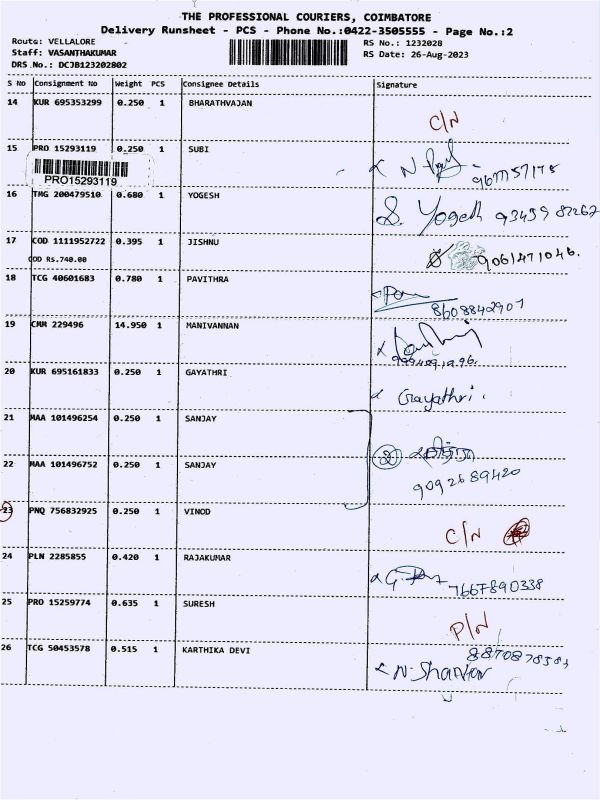 THE PROFESSIONAL COURIERS, COIMBATORE
Delivery Runsheet - PCS - Phone No.:0422-3505555 - Page No.:2
Route: VELLALORE RS No.: 1232028
Staff: VASANTHAKUMAR RS Date: 26-Aug-2023
DRS No.: DCJB123202802
S No Consignment No Weight PCS Consignee Details Signature
14 KUR 695353299 0.250 1 BHARATHVAJAN
C/N
15 PRO 15293119 0.250 1 SUBI
PRO15293119
16 TMG 200479510 0.680 1 YOGESH
S. Yogesh
17 COD 1111952722 0.395 1 JISHNU
COD Rs.740.00 9061471046.
18 TCG 40601683 0.780 1 PAVITHRA
8608842907
19 CMM 229496 14.950 1 MANIVANNAN
20 KUR 695161833 0.250 1 GAYATHRI
Gayathri.
21 MAA 101496254 0.250 1 SANJAY
22 MAA 101496752 0.250 1 SANJAY
9092689420
23 PNQ 756832925 0.250 1 VINOD
C/N
24 PLN 2285855 0.420 1 RAJAKUMAR
7667890338
25 PRO 15259774 0.635 1 SURESH
P/N
26 TCG 50453578 0.515 1 KARTHIKA DEVI